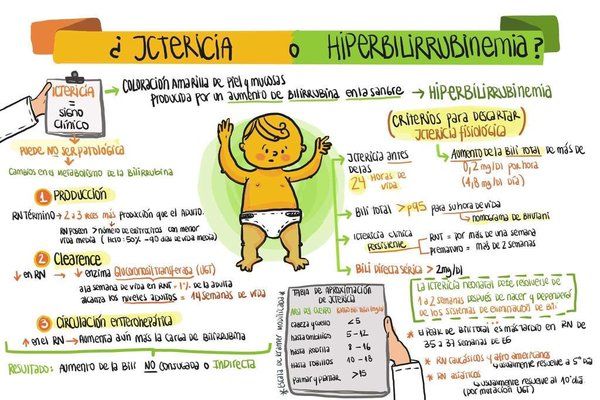 ¿ ICTERICIA o HIPERBILIRRUBINEMIA?
ICTERICIA
=
SIGNO
CLÍNICO
COLORACIÓN AMARILLA DE PIEL Y MUCOSAS
PRODUCIDA POR UN AUMENTO DE BILIRRUBINA EN LA SANGRE → HIPERBILIRRUBINEMIA
PUEDE NO SER PATOLÓGICA
CAMBIOS EN EL METABOLISMO DE LA BILIRRUBINA
1 PRODUCCIÓN
RN TÉRMINO → 2 a 3 veces MÁS PRODUCCIÓN QUE EL ADULTO.
RN POSEEN > número de eritrocitos con menor
vida media (Hcto: 50% - 90 días de vida media)
2 Clearence
↓ en RN → ↓ enzima Glucoronosil transferasa (UGT)
a la semana de vida en RN = 1% de la adulta
alcanza los niveles adultos = 14 semanas de vida
3 CIRCULACIÓN enterohepática
↑ en el RN → Aumenta aún más la carga de Bilirrubina
RESULTADO: Aumento de la Bili NO conjugada o INDIRECTA
CRITERIOS PARA DESCARTAR
ICTERICIA FISIOLÓGICA
ICTERICIA ANTES
DE LAS
24 HORAS DE
VIDA
AUMENTO DE LA BILI TOTAL DE MÁS DE
0,2 mg/dl POR HORA
(4,8 mg/dl DÍA)
Bili TOTAL >p95 para su hora de vida
→ nomograma de Bhutani
ICTERICIA CLÍNICA
PERSISTENTE
RNT = por más de una semana
Prematuro = más de 2 semanas
Bili DIRECTA SÉRICA > 2mg/dl
*Escala de Kramer modificada*
TABLA DE APROXIMACIÓN
DE ICTERICIA
cabeza y cuello <5
hasta ombligo 5-12
hasta rodilla 8-16
hasta tobillos 10-18
palmar y plantar >15
LA ICTERICIA NEONATAL DEBE RESOLVERSE DE
1 a 2 SEMANAS DESPUÉS DE NACER Y DEPENDERÁ
DE LOS SISTEMAS DE ELIMINACIÓN DE BILI
* El PEAK de BILI TOTAL es MÁS TARDÍO en RN DE
35 a 37 semanas de EG
* RN CAUCÁSICOS y AFRO AMERICANOS
→ usualmente resuelve a 5° día
* RN ASIÁTICOS
→ usualmente resuelve al 10° día.
(por mutación UGT)